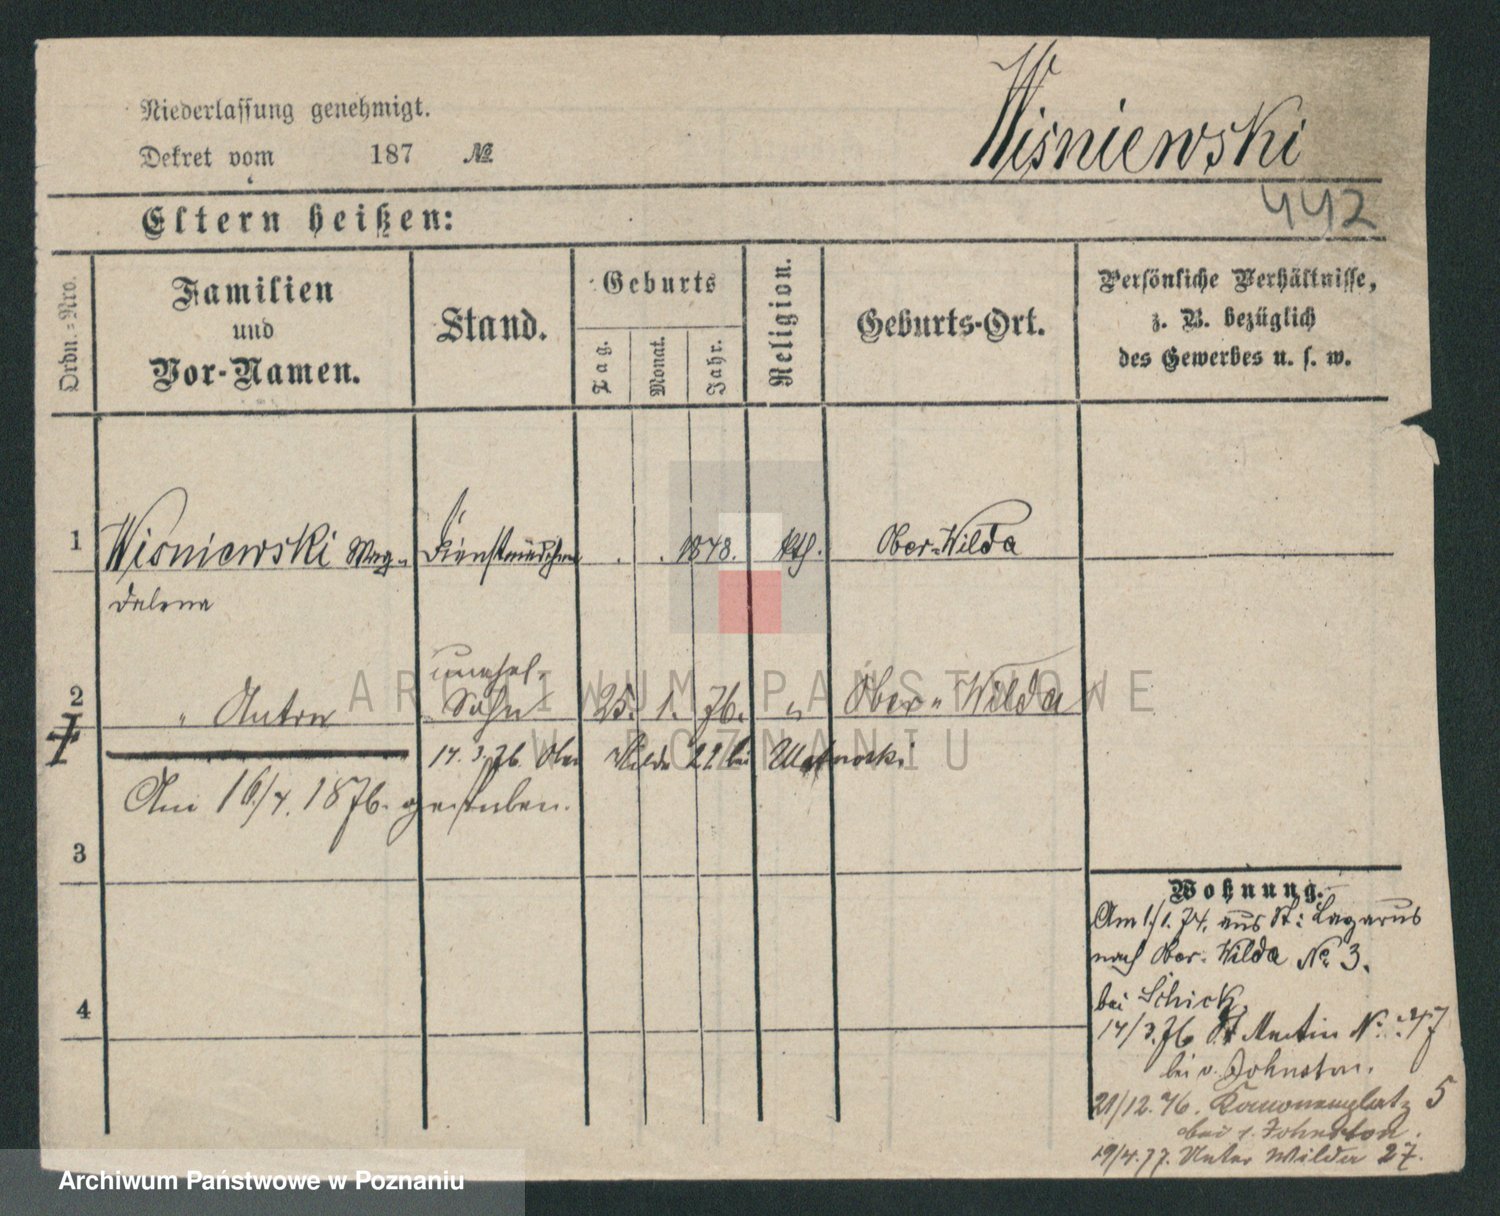 Niederlassung genehmigt.
Dekret vom 187 №
Wisniewski
442
Eltern heißen:
Ordn.=Nro.
Familien
und
Vor-Namen.
Stand.
Geburts
Tag.
Monat.
Jahr.
Religion.
Geburts-Ort.
Persönliche Verhältnisse,
z. B. bezüglich
des Gewerbes u. s. w.
1 Wisniewski Mag- Dienstmädchen . . 1848. kth. Ober-Wilda
dalena
unehel.
2 " Anton Sohn 25. 1. 76. " Ober-Wilda
17.3.76. Ober Wilda 22 bei
Am 16/4. 1876. gestorben.
3
4
Wohnung.
Am 1/1. 74. aus St: Lazarus
nach Ober-Wilda No 3.
bei Schick.
17/3.76 St Martin No 47
bei v. Johnston.
21/12.76. Kanonenplatz 5
bei v. Johnston.
19/4.77. Unter Wilda 27.
ARCHIWUM PAŃSTWOWE
W POZNANIU
Archiwum Państwowe w Poznaniu